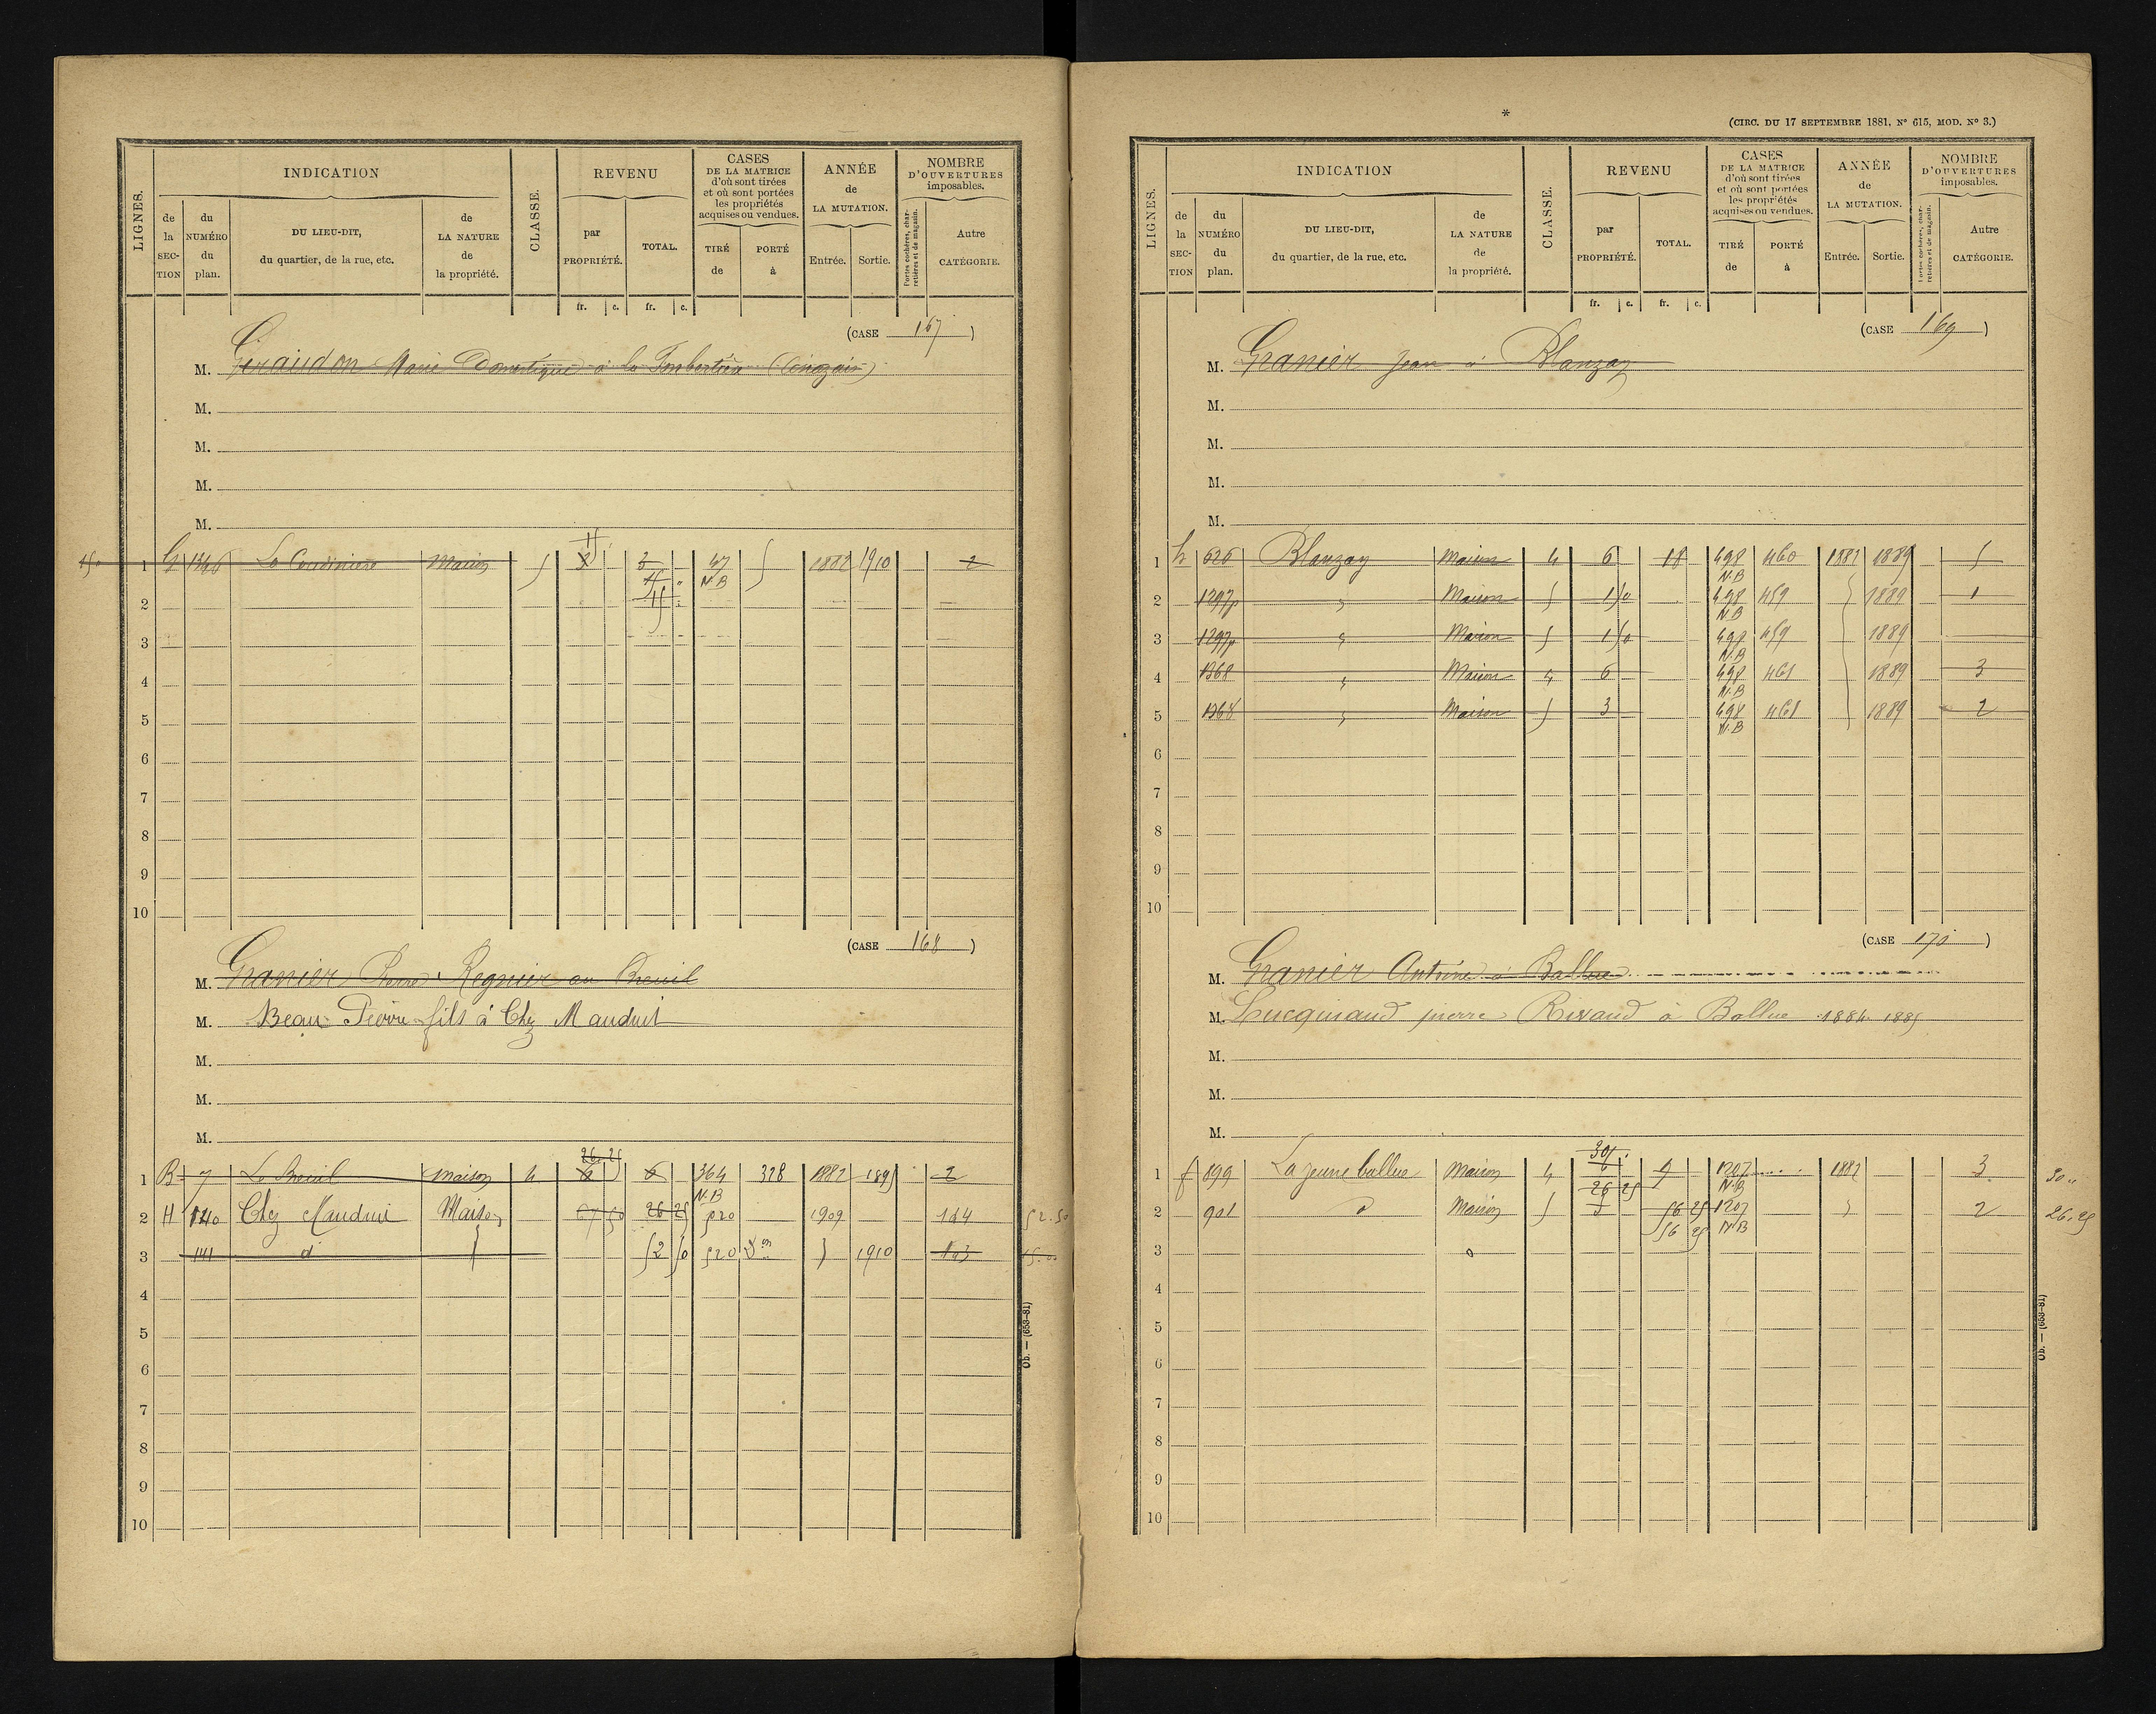 LIGNES.
INDICATION
de la SECTION
du NUMÉRO du plan.
DU LIEU-DIT, du quartier, de la rue, etc.
de LA NATURE de la propriété.
CLASSE.
REVENU
par PROPRIÉTÉ.
TOTAL.
CASES DE LA MATRICE d'où sont tirées et où sont portées les propriétés acquises ou vendues.
TIRÉ de
PORTÉ à
ANNÉE de LA MUTATION.
Entrée.
Sortie.
NOMBRE D'OUVERTURES imposables.
Portes cochères, charretières et de magasin.
Autre CATÉGORIE.
fr. c. fr. c.
(CASE 167)
M. Giraudon Marie Domestique à la
M.
M.
M.
M.
1 G 1346 Maison 5 3 3 47 N.B 5 1882 1910 2
15
2
3
4
5
6
7
8
9
10
(CASE 168)
M. Granier Pierre Regnier au Breuil
M. Beau Pierre fils à Chez Mauduit
M.
M.
M.
26 25
1 B 7 Le Breuil maison 4 6 6 364 N.B 328 1882 1895 2
2 H 140 Chez Mauduit Maison 67 50 26 25 520 1909 144 52.50
3 141 d° 52 50 520 1910 143 15.00
4
5
6
7
8
9
10
Ob. — (653-81)
*
(CIRC. DU 17 SEPTEMBRE 1881, N° 615, MOD. N° 3.)
LIGNES.
INDICATION
de la SECTION
du NUMÉRO du plan.
DU LIEU-DIT, du quartier, de la rue, etc.
de LA NATURE de la propriété.
CLASSE.
REVENU
par PROPRIÉTÉ.
TOTAL.
CASES DE LA MATRICE d'où sont tirées et où sont portées les propriétés acquises ou vendues.
TIRÉ de
PORTÉ à
ANNÉE de LA MUTATION.
Entrée.
Sortie.
NOMBRE D'OUVERTURES imposables.
Portes cochères, charretières et de magasin.
Autre CATÉGORIE.
fr. c. fr. c.
(CASE 169)
M. Granier Jean à Blanzay
M.
M.
M.
M.
1 h 626 Blanzay Maison 4 6 18 498 N.B 460 1882 1889 5
2 1297p " Maison 5 1 50 498 N.B 459 1889 1
3 1297p " Maison 5 1 50 498 N.B 459 1889
4 1368 " Maison 4 6 498 N.B 461 1889 3
5 1368 " Maison 5 3 498 N.B 461 1889 2
6
7
8
9
10
(CASE 170)
M. Granier Antoine à Ballue
M. Lucquiaud pierre Rivaud à Ballue 1884 1885
M.
M.
M.
30
1 f 899 La jeune ballue Maison 4 6 9 1207 N.B 1882 3 30 "
26 25
2 901 d° Maison 5 3 56 25 1207 N.B 2 26.25
56 25
3
4
5
6
7
8
9
10
Ob. — (653-81)